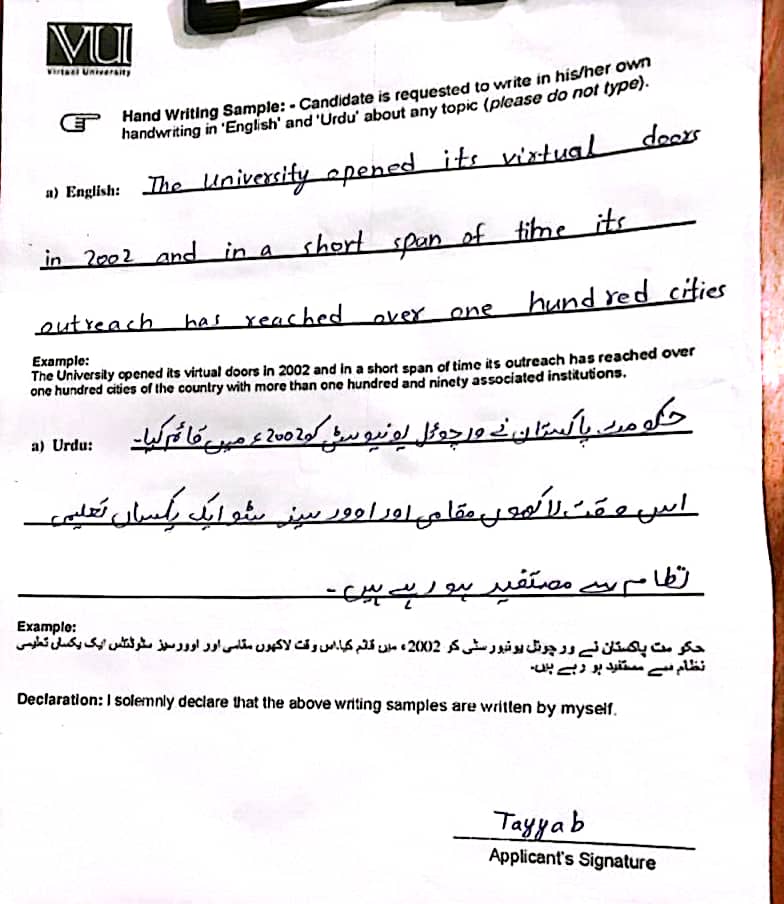 VU
Virtual University
Hand Writing Sample: - Candidate is requested to write in his/her own
handwriting in 'English' and 'Urdu' about any topic (please do not type).
a) English: The University opened its virtual doors
in 2002 and in a short span of time its
outreach has reached over one hundred cities
Example:
The University opened its virtual doors in 2002 and in a short span of time its outreach has reached over
one hundred cities of the country with more than one hundred and ninety associated institutions.
a) Urdu: حکومت پاکستان نے ورچوئل یونیورسٹی کو 2002ء میں قائم کیا۔
اس وقت لاکھوں مقامی اور اوورسیز سٹو ایک یکساں تعلیمی
نظام سے مستفید ہو رہے ہیں۔
Example:
حکو مت پاکستان نے ورچوئل یونیورسٹی کو 2002ء میں قائم کیا.اس وقت لاکھوں مقامی اور اوورسیز سٹوڈنٹس ایک یکساں تعلیمی
نظام سے مستفید ہو رہے ہیں.
Declaration: I solemnly declare that the above writing samples are written by myself.
Tayyab
Applicant's Signature